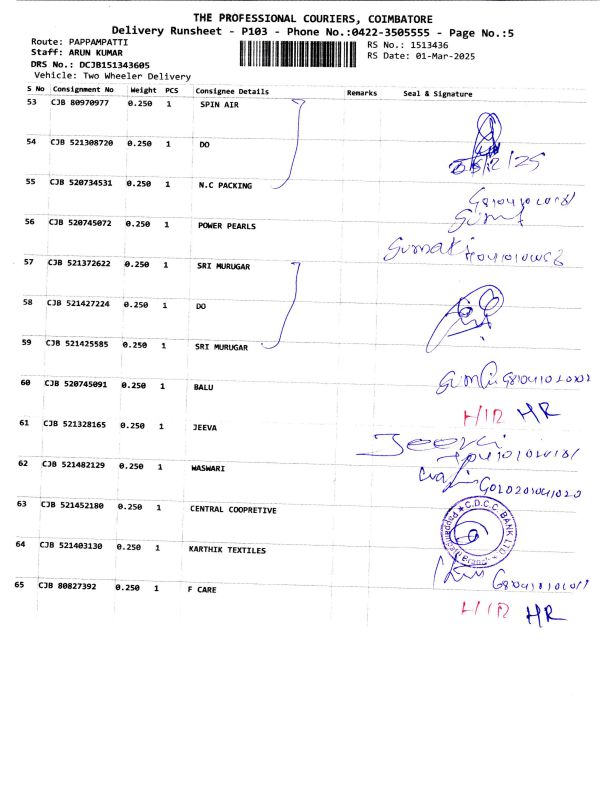 THE PROFESSIONAL COURIERS, COIMBATORE
Delivery Runsheet - P103 - Phone No.:0422-3505555 - Page No.:5
Route: PAPPAMPATTI RS No.: 1513436
Staff: ARUN KUMAR RS Date: 01-Mar-2025
DRS No.: DCJB151343605
Vehicle: Two Wheeler Delivery
S No Consignment No Weight PCS Consignee Details Remarks Seal & Signature
53 CJB 80970977 0.250 1 SPIN AIR
54 CJB 521308720 0.250 1 DO
55 CJB 520734531 0.250 1 N.C PACKING
56 CJB 520745072 0.250 1 POWER PEARLS
57 CJB 521372622 0.250 1 SRI MURUGAR
58 CJB 521427224 0.250 1 DO
59 CJB 521425585 0.250 1 SRI MURUGAR
60 CJB 520745091 0.250 1 BALU
HR
61 CJB 521328165 0.250 1 JEEVA
62 CJB 521482129 0.250 1 WASWARI
63 CJB 521452180 0.250 1 CENTRAL COOPRETIVE
C.D.C.C. BANK LTD
Branch
64 CJB 521403130 0.250 1 KARTHIK TEXTILES
65 CJB 80827392 0.250 1 F CARE
HR